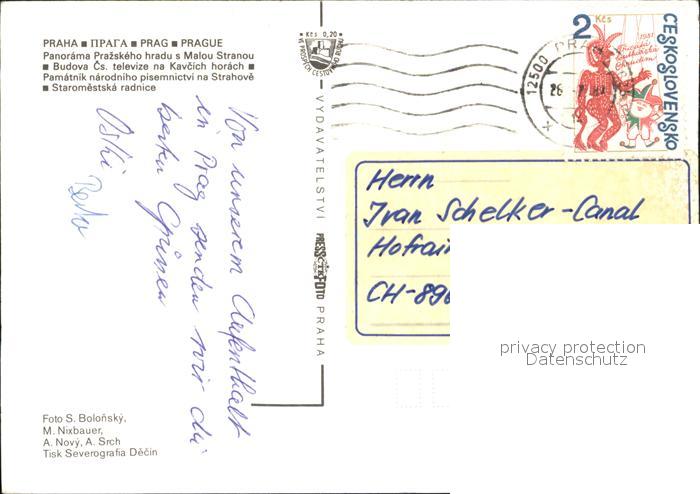 PRAHA ■ ПРАГА ■ PRAG ■ PRAGUE
Panoráma Pražského hradu s Malou Stranou
■ Budova Čs. televize na Kavčích horách ■
Památník národního písemnictví na Strahově
■ Staroměstská radnice
Kčs 0,20
2 Kčs
ČESKOSLOVENSKO
12500 PRAHA
Von unserem Aufenthalt
in Prag senden wir die
beste Grüsse
VYDAVATELSTVÍ PRESSFOTO PRAHA
Herrn
Ivan Schelker-Canal
CH-896
privacy protection
Datenschutz
Foto S. Boloňský,
M. Nixbauer,
A. Nový, A. Srch
Tisk Severografia Děčín